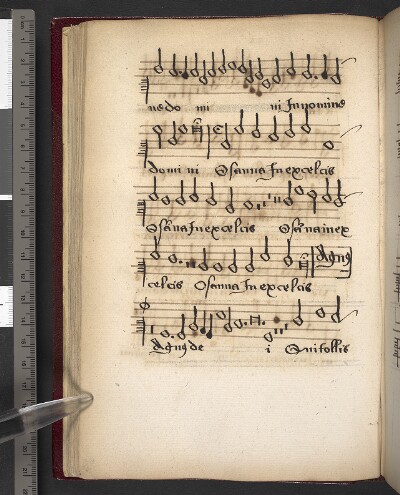 ne do mi ni In nomine
domi ni Osanna In excelcis
Osãna In excelcis Osãna in ex
Agnus
celcis Osanna In excelcis
Agnus de i Qui tollis